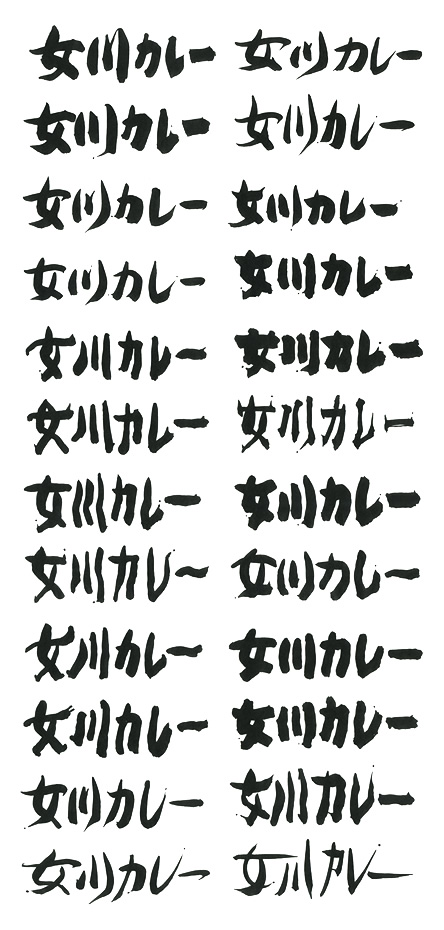 女川カレー 女川カレー
女川カレー 女川カレー
女川カレー 女川カレー
女川カレー 女川カレー
女川カレー 女川カレー
女川カレー 女川カレー
女川カレー 女川カレー
女川カレー 女川カレー
女川カレー 女川カレー
女川カレー 女川カレー
女川カレー 女川カレー
女川カレー 女川カレー